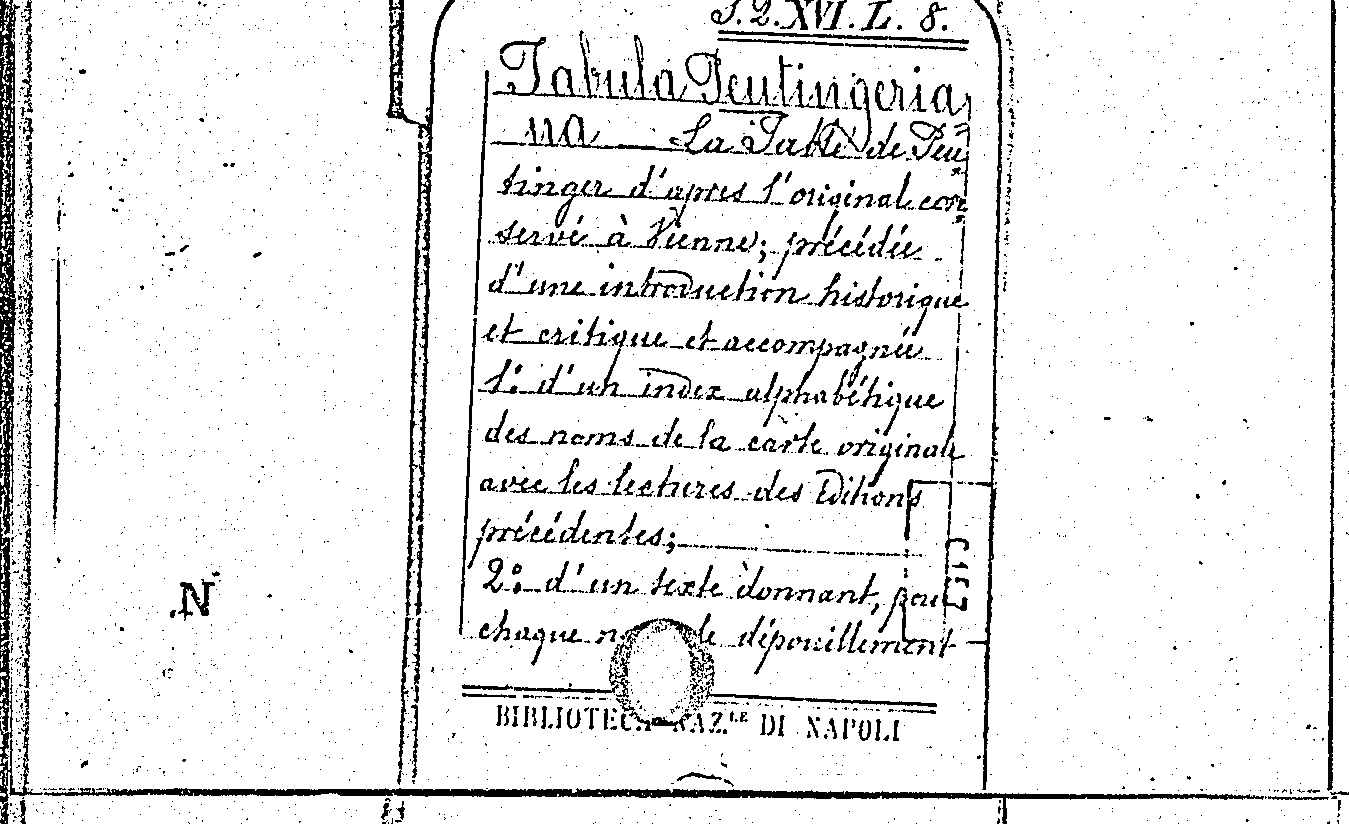 S. Q. XVI. L. 8.
Tabula Peutingeria
na — La Table de Peu
tinger d'après l'original con
servé à Vienne; précédée
d'une introduction historique
et critique et accompagnée
1º d'un index alphabétique
des noms de la carte originale
avec les lectures des Editions
précédentes;
2º d'un texte donnant, pour
chaque le dépouillement
BIBLIOTECA NAZ.LE DI NAPOLI
N